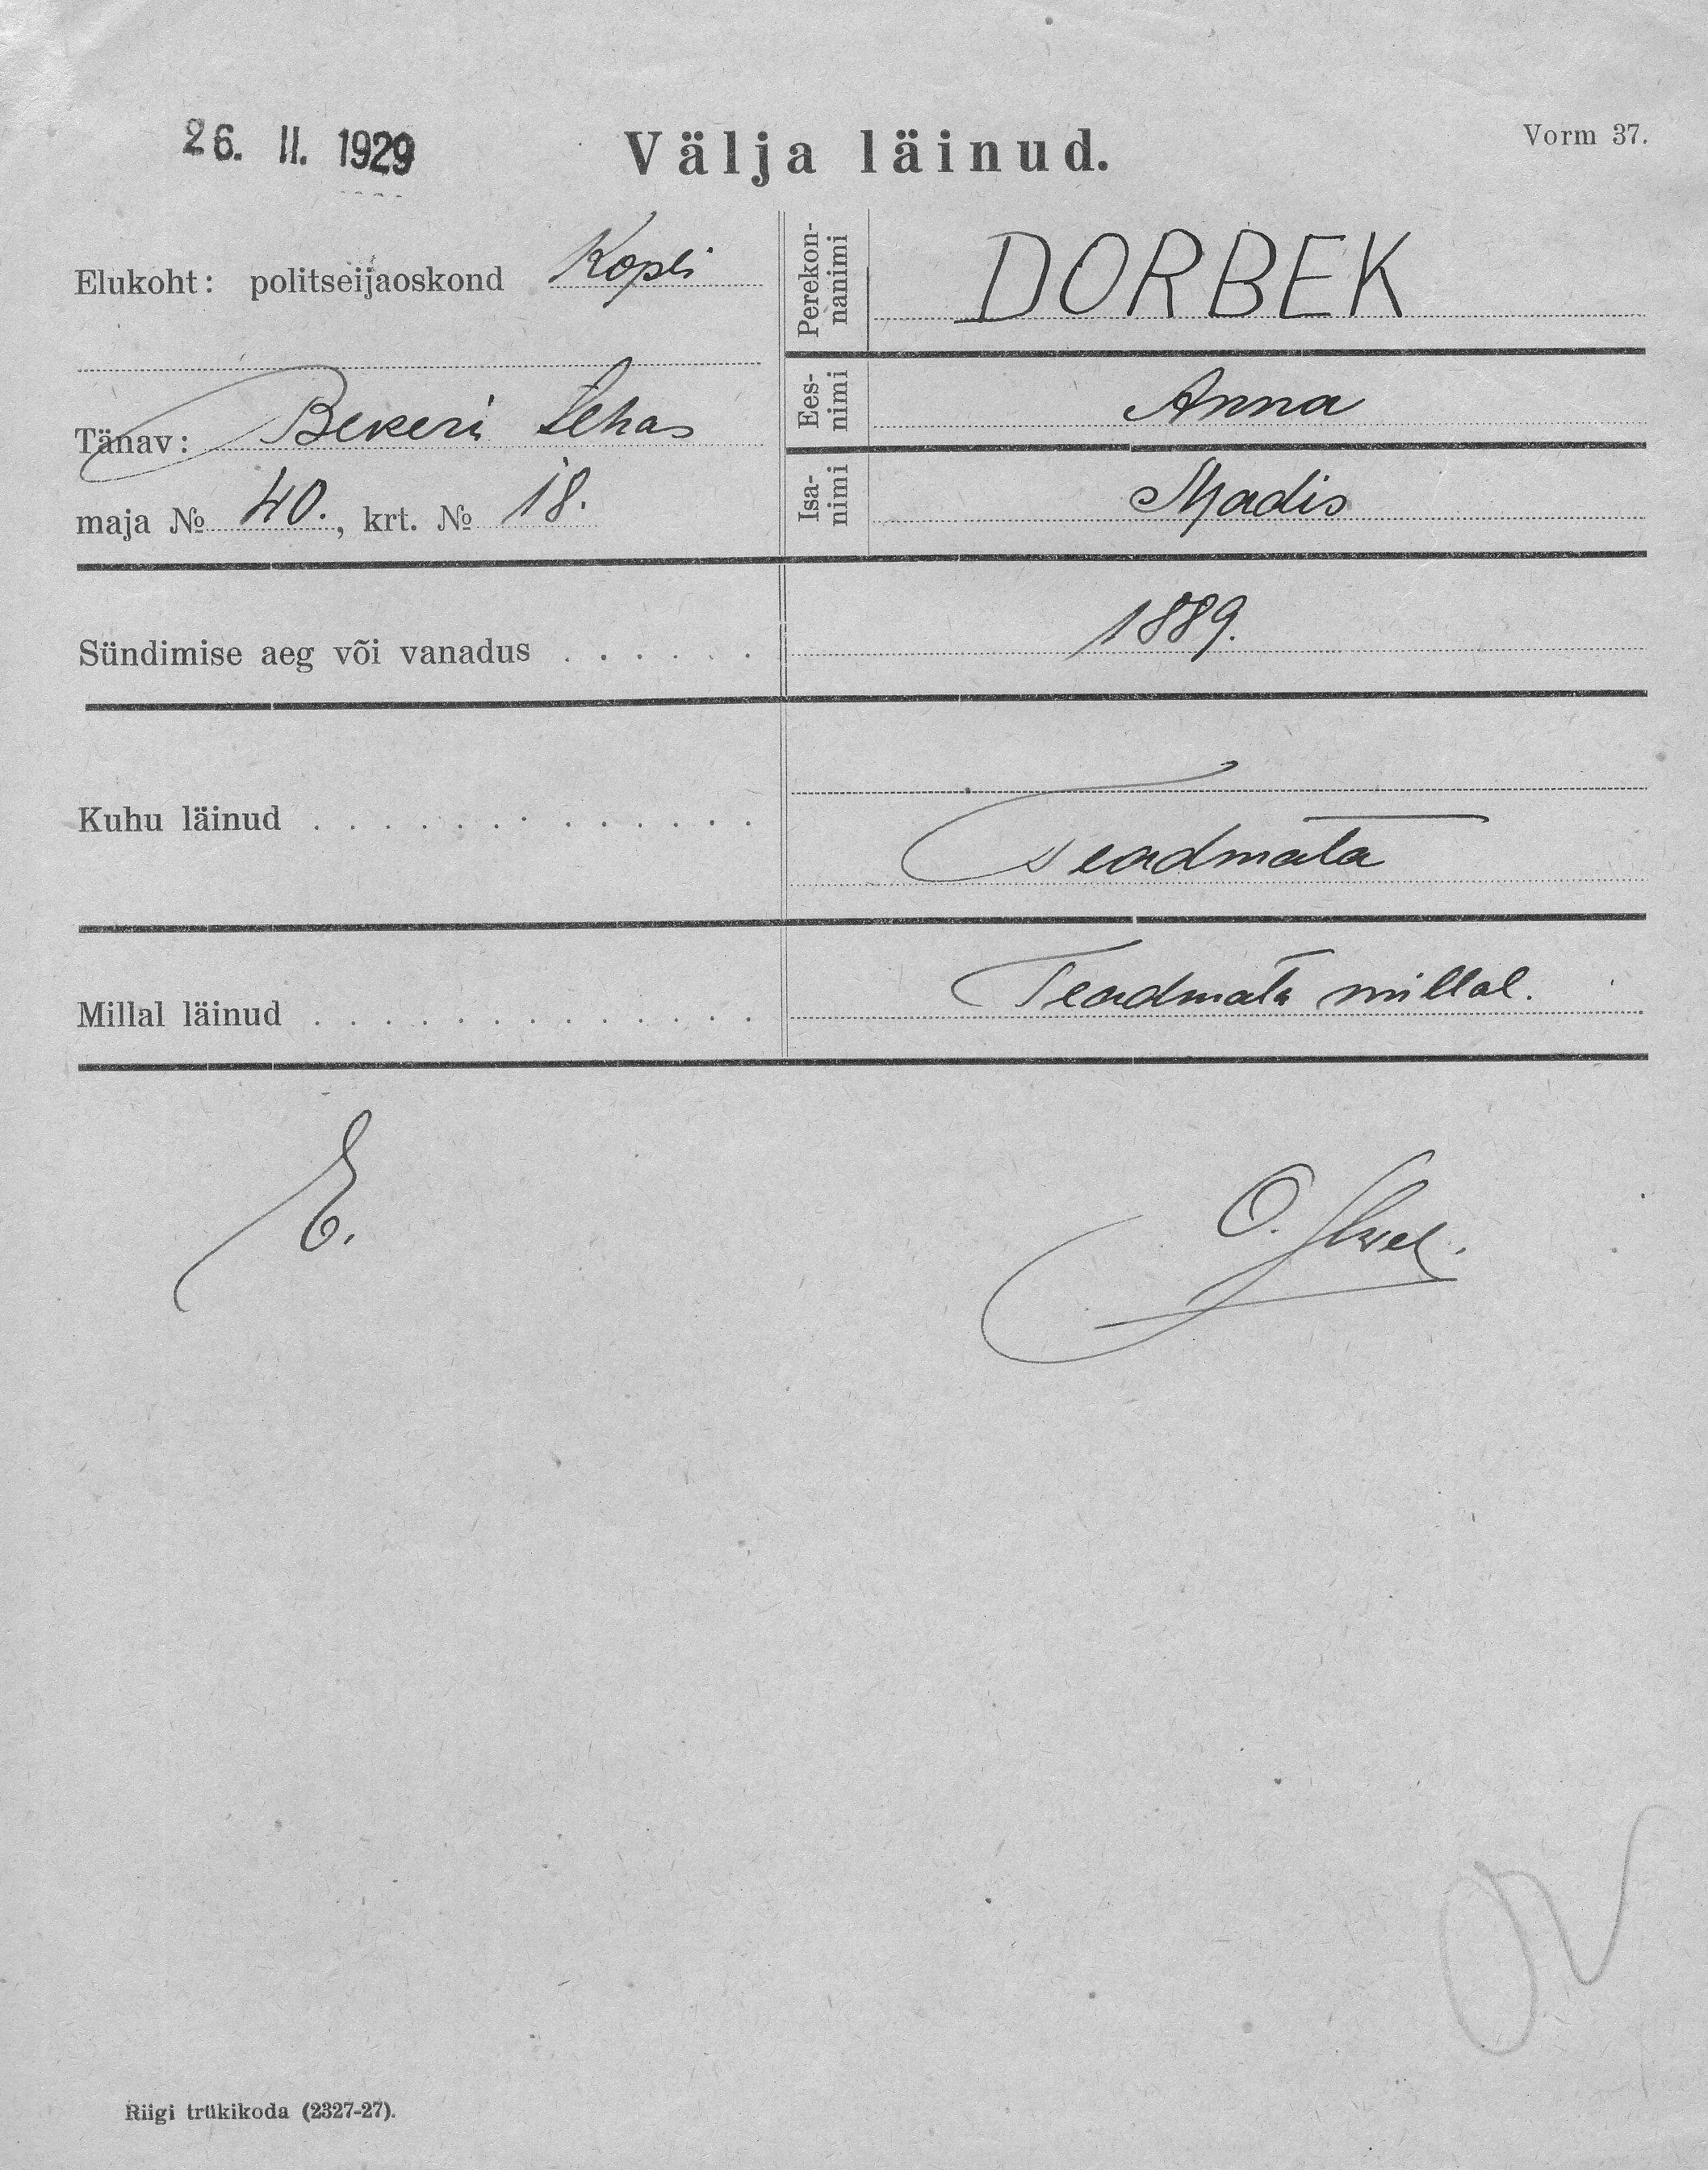 26. II. 1929
Välja läinud.
Vorm 37.
Elukoht: politseijaoskond Kopli
Tänav: Bekeri tehas
maja № 40., krt. № 18.
Perekon-
nanimi
DORBEK
Ees-
nimi
Anna
Isa-
nimi
Madis
Sündimise aeg või vanadus . . . . . . 1889.
Kuhu läinud . . . . . . . . . . . . . Teadmata
Millal läinud . . . . . . . . . . . . . Teadmata millal.
E.
O.
Riigi trükikoda (2327-27).